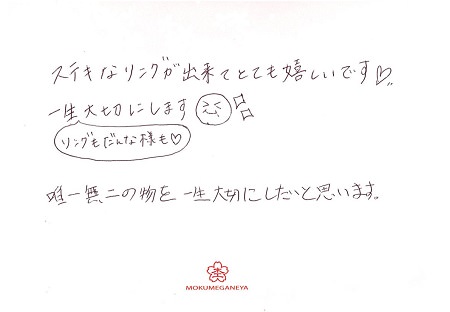 ステキなリングが出来てとても嬉しいです♡
一生大切にします
リングもだんな様も♡
唯一無二の物を一生大切にしたいと思います。
MOKUMEGANEYA